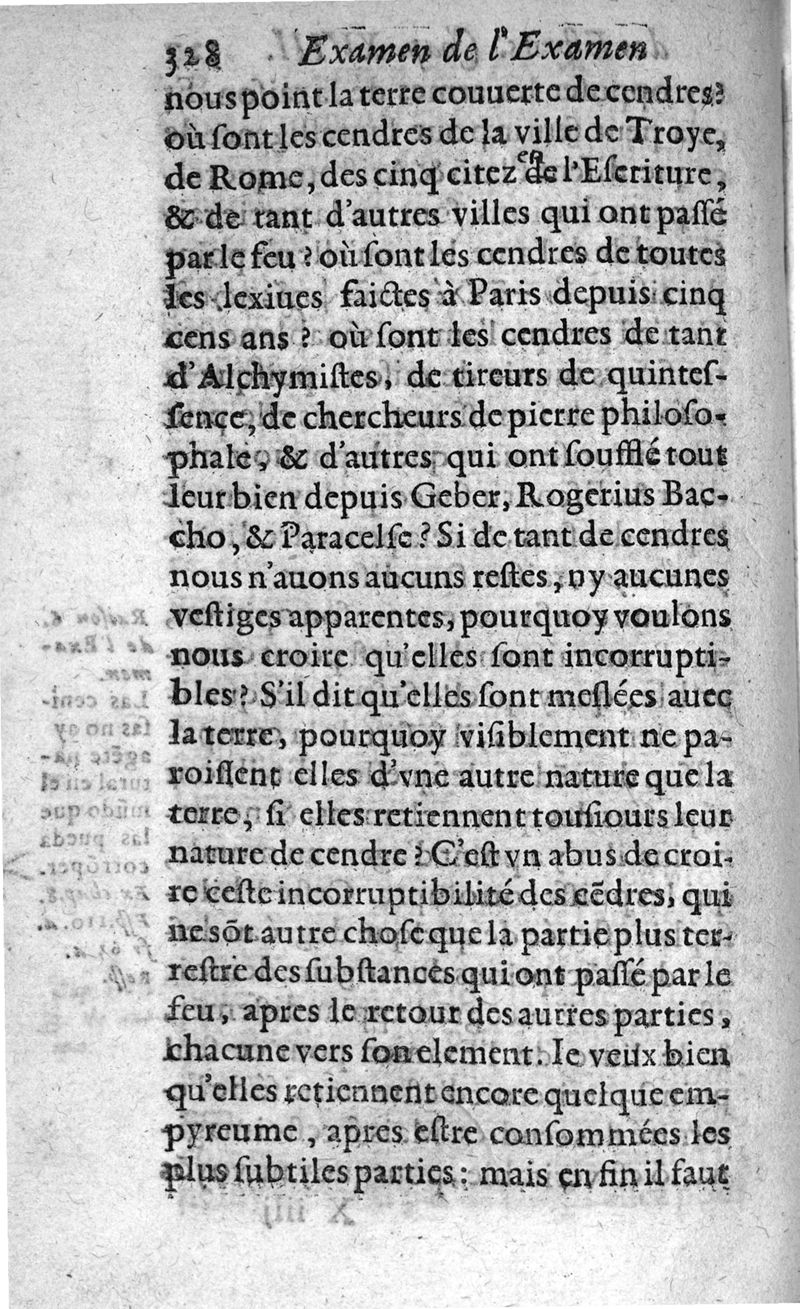 328 Examen de l'Examen
nous point la terre couuerte de cendres?
où ſont les cendres de la ville de Troye,
de Rome, des cinq citez de l'Eſcriture,
& de tant d'autres villes qui ont paſſé
par le feu? où ſont les cendres de toutes
les lexiues faictes à Paris depuis cinq
cens ans? où ſont les cendres de tant
d'Alchymiſtes, de tireurs de quinteſ-
ſence, de chercheurs de pierre philoſo-
phale, & d'autres qui ont ſoufflé tout
leur bien depuis Geber, Rogerius Bac-
cho, & Paracelſe? Si de tant de cendres
nous n'auons aucuns reſtes, ny aucunes
veſtiges apparentes, pourquoy voulons
nous croire qu'elles ſont incorrupti-
bles? S'il dit qu'elles ſont meſlées auec
la terre, pourquoy viſiblement ne pa-
roiſſent elles d'vne autre nature que la
terre, ſi elles retiennent touſiours leur
nature de cendre? C'eſt vn abus de croi-
re ceſte incorruptibilité des cēdres, qui
ne sōt autre choſe que la partie plus ter-
reſtre des ſubſtances qui ont paſſé par le
feu, apres le retour des autres parties,
chacune vers ſon element. Ie veux bien
qu'elles retiennent encore quelque em-
pyreume, apres eſtre conſommées les
plus ſubtiles parties: mais en fin il faut